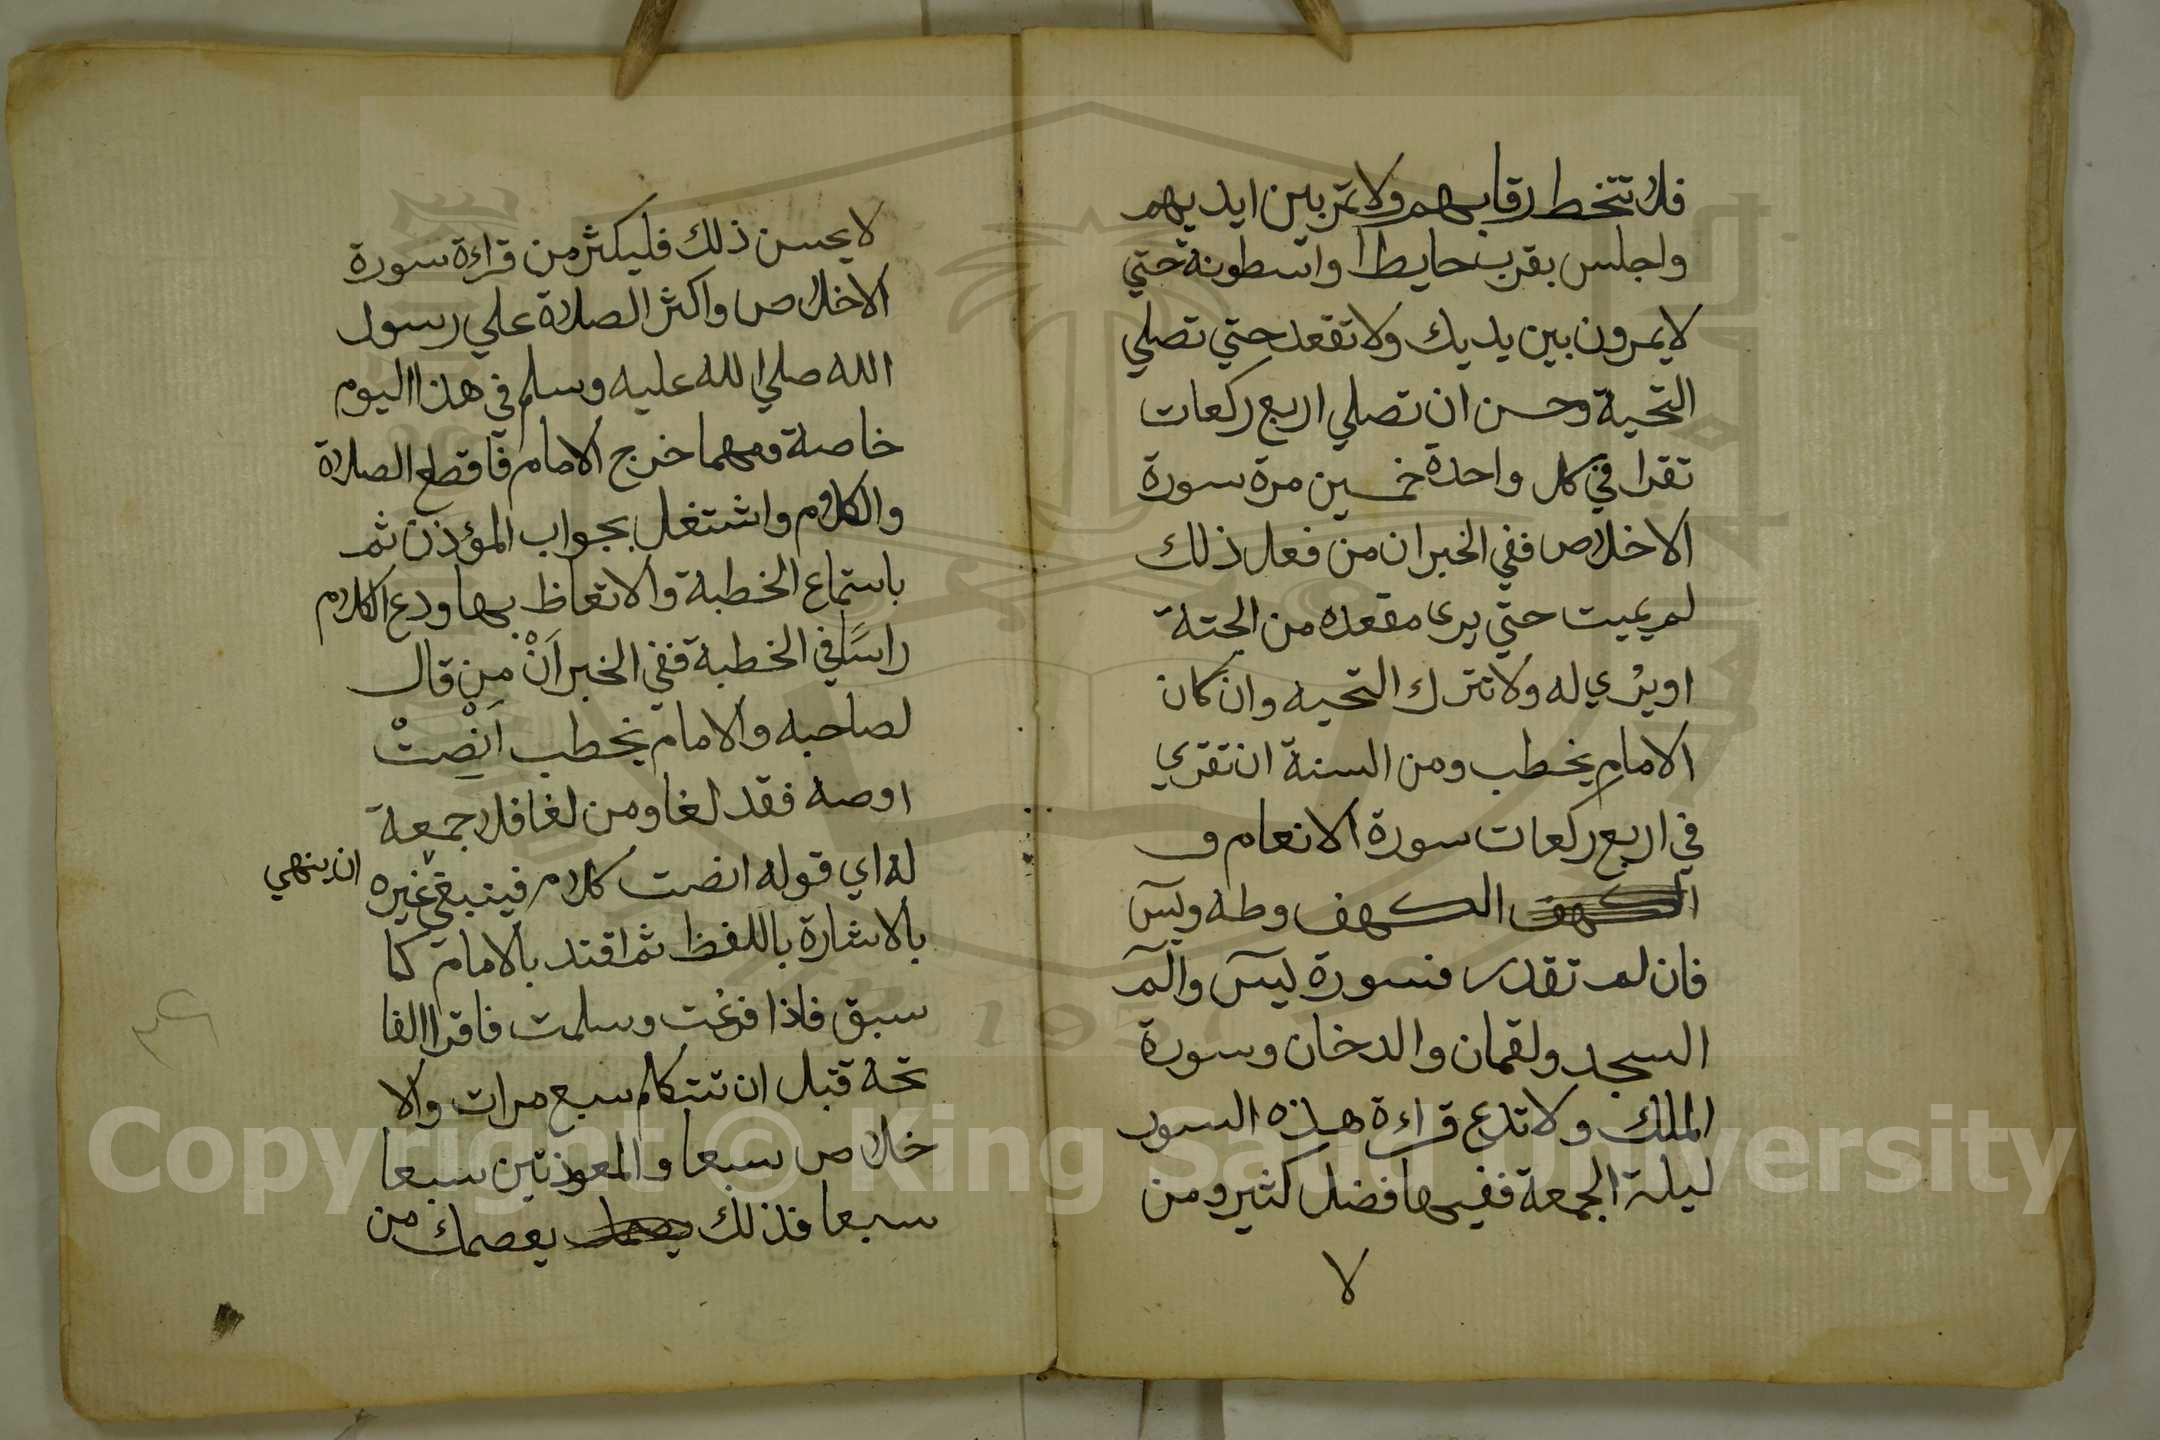 فلا تتخط رقابهم ولا تمر بين ايديهم
واجلس بقرب حايط او اسطونة حتي
لا يمرون بين يديك ولا تقعد حتي تصلي
التحية وحسن ان تصلي اربع ركعات
تقرا في كل واحدة خمسين مرة سورة
الاخلاص ففي الخبر ان من فعل ذلك
لم يميت حتي يرى مقعده من الجنة
او يُري له ولا تترك التحيه وان كان
الامام يخطب ومن السنة ان تقري
في اربع ركعات سورة الانعام و
الكهف الكهف وطه ويس
فان لم تقدر فسورة يس والم
السجد ولقمان والدخان وسورة
الملك ولا تدع قراءة هذه السور
ليلة الجمعة ففيها فضل كثير ومن
لا
لا يحسن ذلك فليكثر من قراءة سورة
الاخلاص واكثر الصلاة علي رسول
الله صلي الله عليه وسلم في هذا اليوم
خاصة ومهما خرج الامام فاقطع الصلاة
والكلام واشتغل بجواب المؤذن ثم
باستماع الخطبة والاتعاظ بها ودع الكلام
راسًا في الخطبة ففي الخبر اَنْ من قال
لصاحبه والامام يخطب اَنْصِتْ
او صه فقد لغا ومن لغا فلا جمعة
له اي قوله انصت كلام فينبغي غيره
ان ينهي
بالاشارة باللفظ ثم اقتد بالامام كما
سبق فاذا فرغت وسلمت فاقرا الفا
تحة قبل ان تتكلم سبع مرات والا
خلاص سبعا والمعوذتين سبعا
سبعا فذلك يعصمك من
Copyright © King Saud University
1957